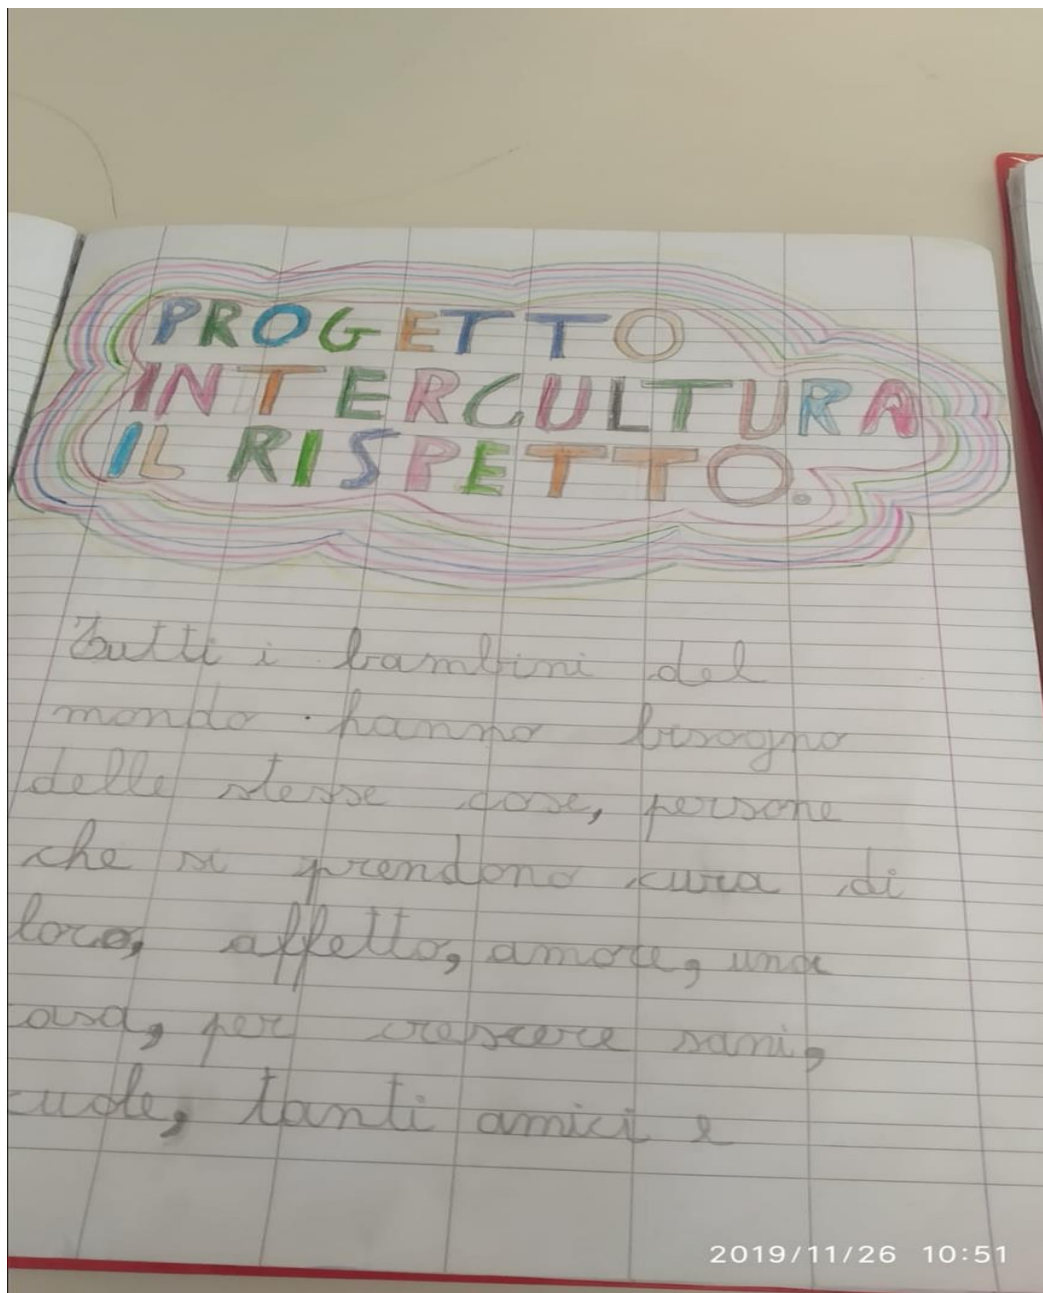 PROGETTO
INTERCULTURA
IL RISPETTO.
Tutti i bambini del
mondo hanno bisogno
delle stesse cose, persone
che si prendono cura di
loro, affetto, amore, una
asa, per crescere sani,
cuole, tanti amici e
2019/11/26 10:51